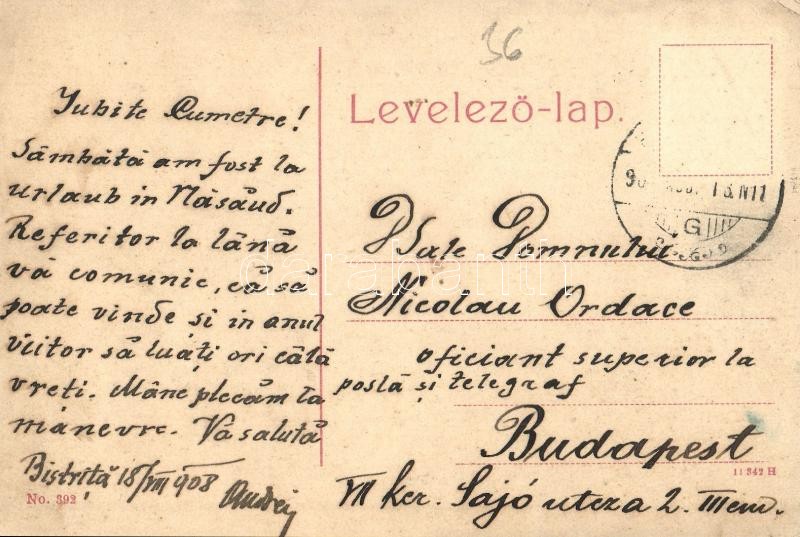 36
Levelezö-lap.
Iubite Cumetre!
Sâmbătă am fost la
urlaub in Năsăud.
Referitor la lână
vă comunic, că să
poate vinde si in anul
viitor să luați ori câtă
vreti. Mâne plecăm la
mănevre. Vă salută
Bistrița 18/VIII 908
Andrei
No. 392
Domnului
Nicolau Ordace
oficiant superior la
postă și telegraf
Budapest
VII ker. Sajó utcza 2. III em.
11342 H